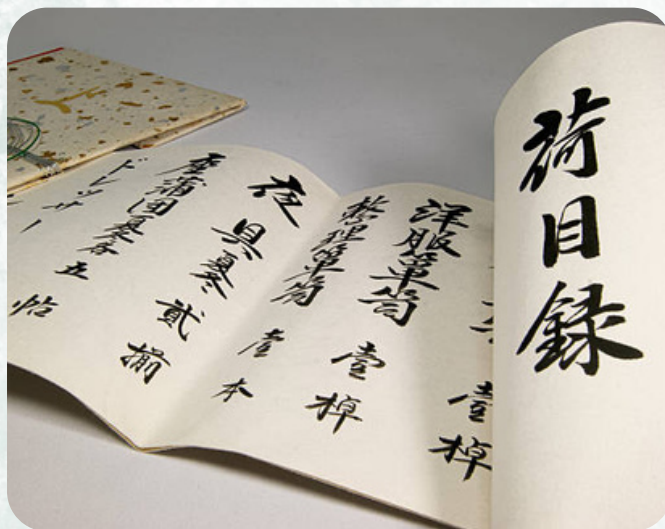 荷目録
壹棹
洋服箪笥 壹棹
整理箪笥 壹本
夜具夏冬 貳揃
座蒲団夏冬 五帖
ドレッサー